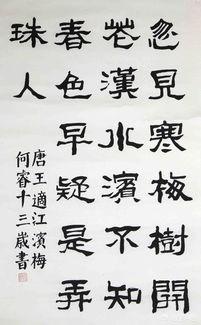 忽見寒梅樹開
花漢水濱不知
春色早疑是弄
珠人
唐王適江濱梅
何睿十三歲書